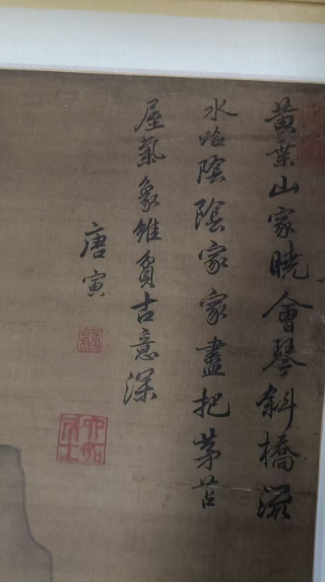 黃葉山家曉會琴斜橋流
水路陰陰家家盡把茅苫
屋氣象雖貧古意深
唐寅
六如居士